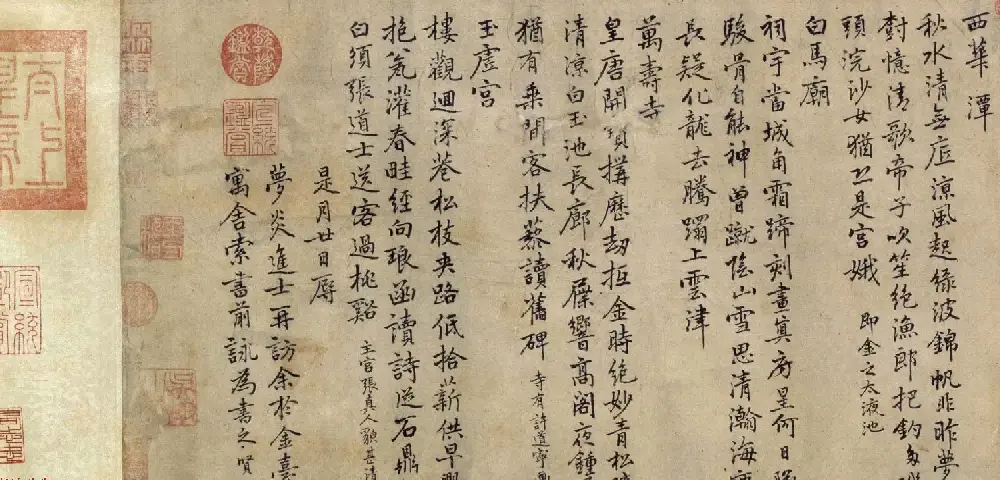 西華潭
秋水清無底涼風起綠波錦帆非昨夢
對憶清歌帝子吹笙絕漁郎把釣多
頭浣沙女猶恐是宮娥 即金之太液池
白馬廟
祠宇當城角霜蹄刻畫真房星何日
駿骨自能神曾蹴陰山雪思清瀚海
長疑化龍去騰躍上雲津
萬壽寺
皇唐開寶構歷劫抵金時絕妙青松
清涼白玉池長廊秋屧響高閣夜鍾
猶有乘閒客扶藜讀舊碑 寺有許道寧
玉虛宮
樓觀迴深巷松枝夾路低拾薪供早
抱瓮灌春畦經向琅函讀詩逆石鼎
白須張道士送客過桃谿 主宮張真人
是月廿日
夢炎進士再訪余於金臺
寓舍索書前詠為書之賢
乾隆鑑賞